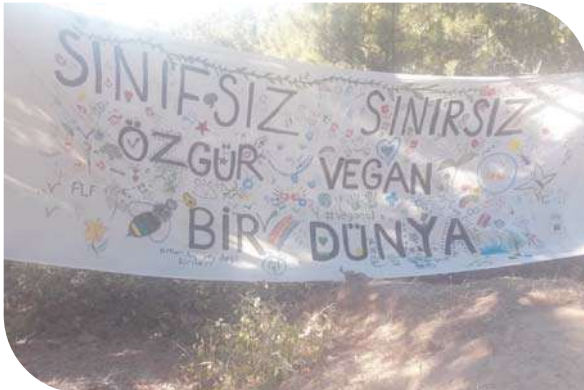 SINIFSIZ SINIRSIZ
ÖZGÜR VEGAN
FLF
BİR DÜNYA